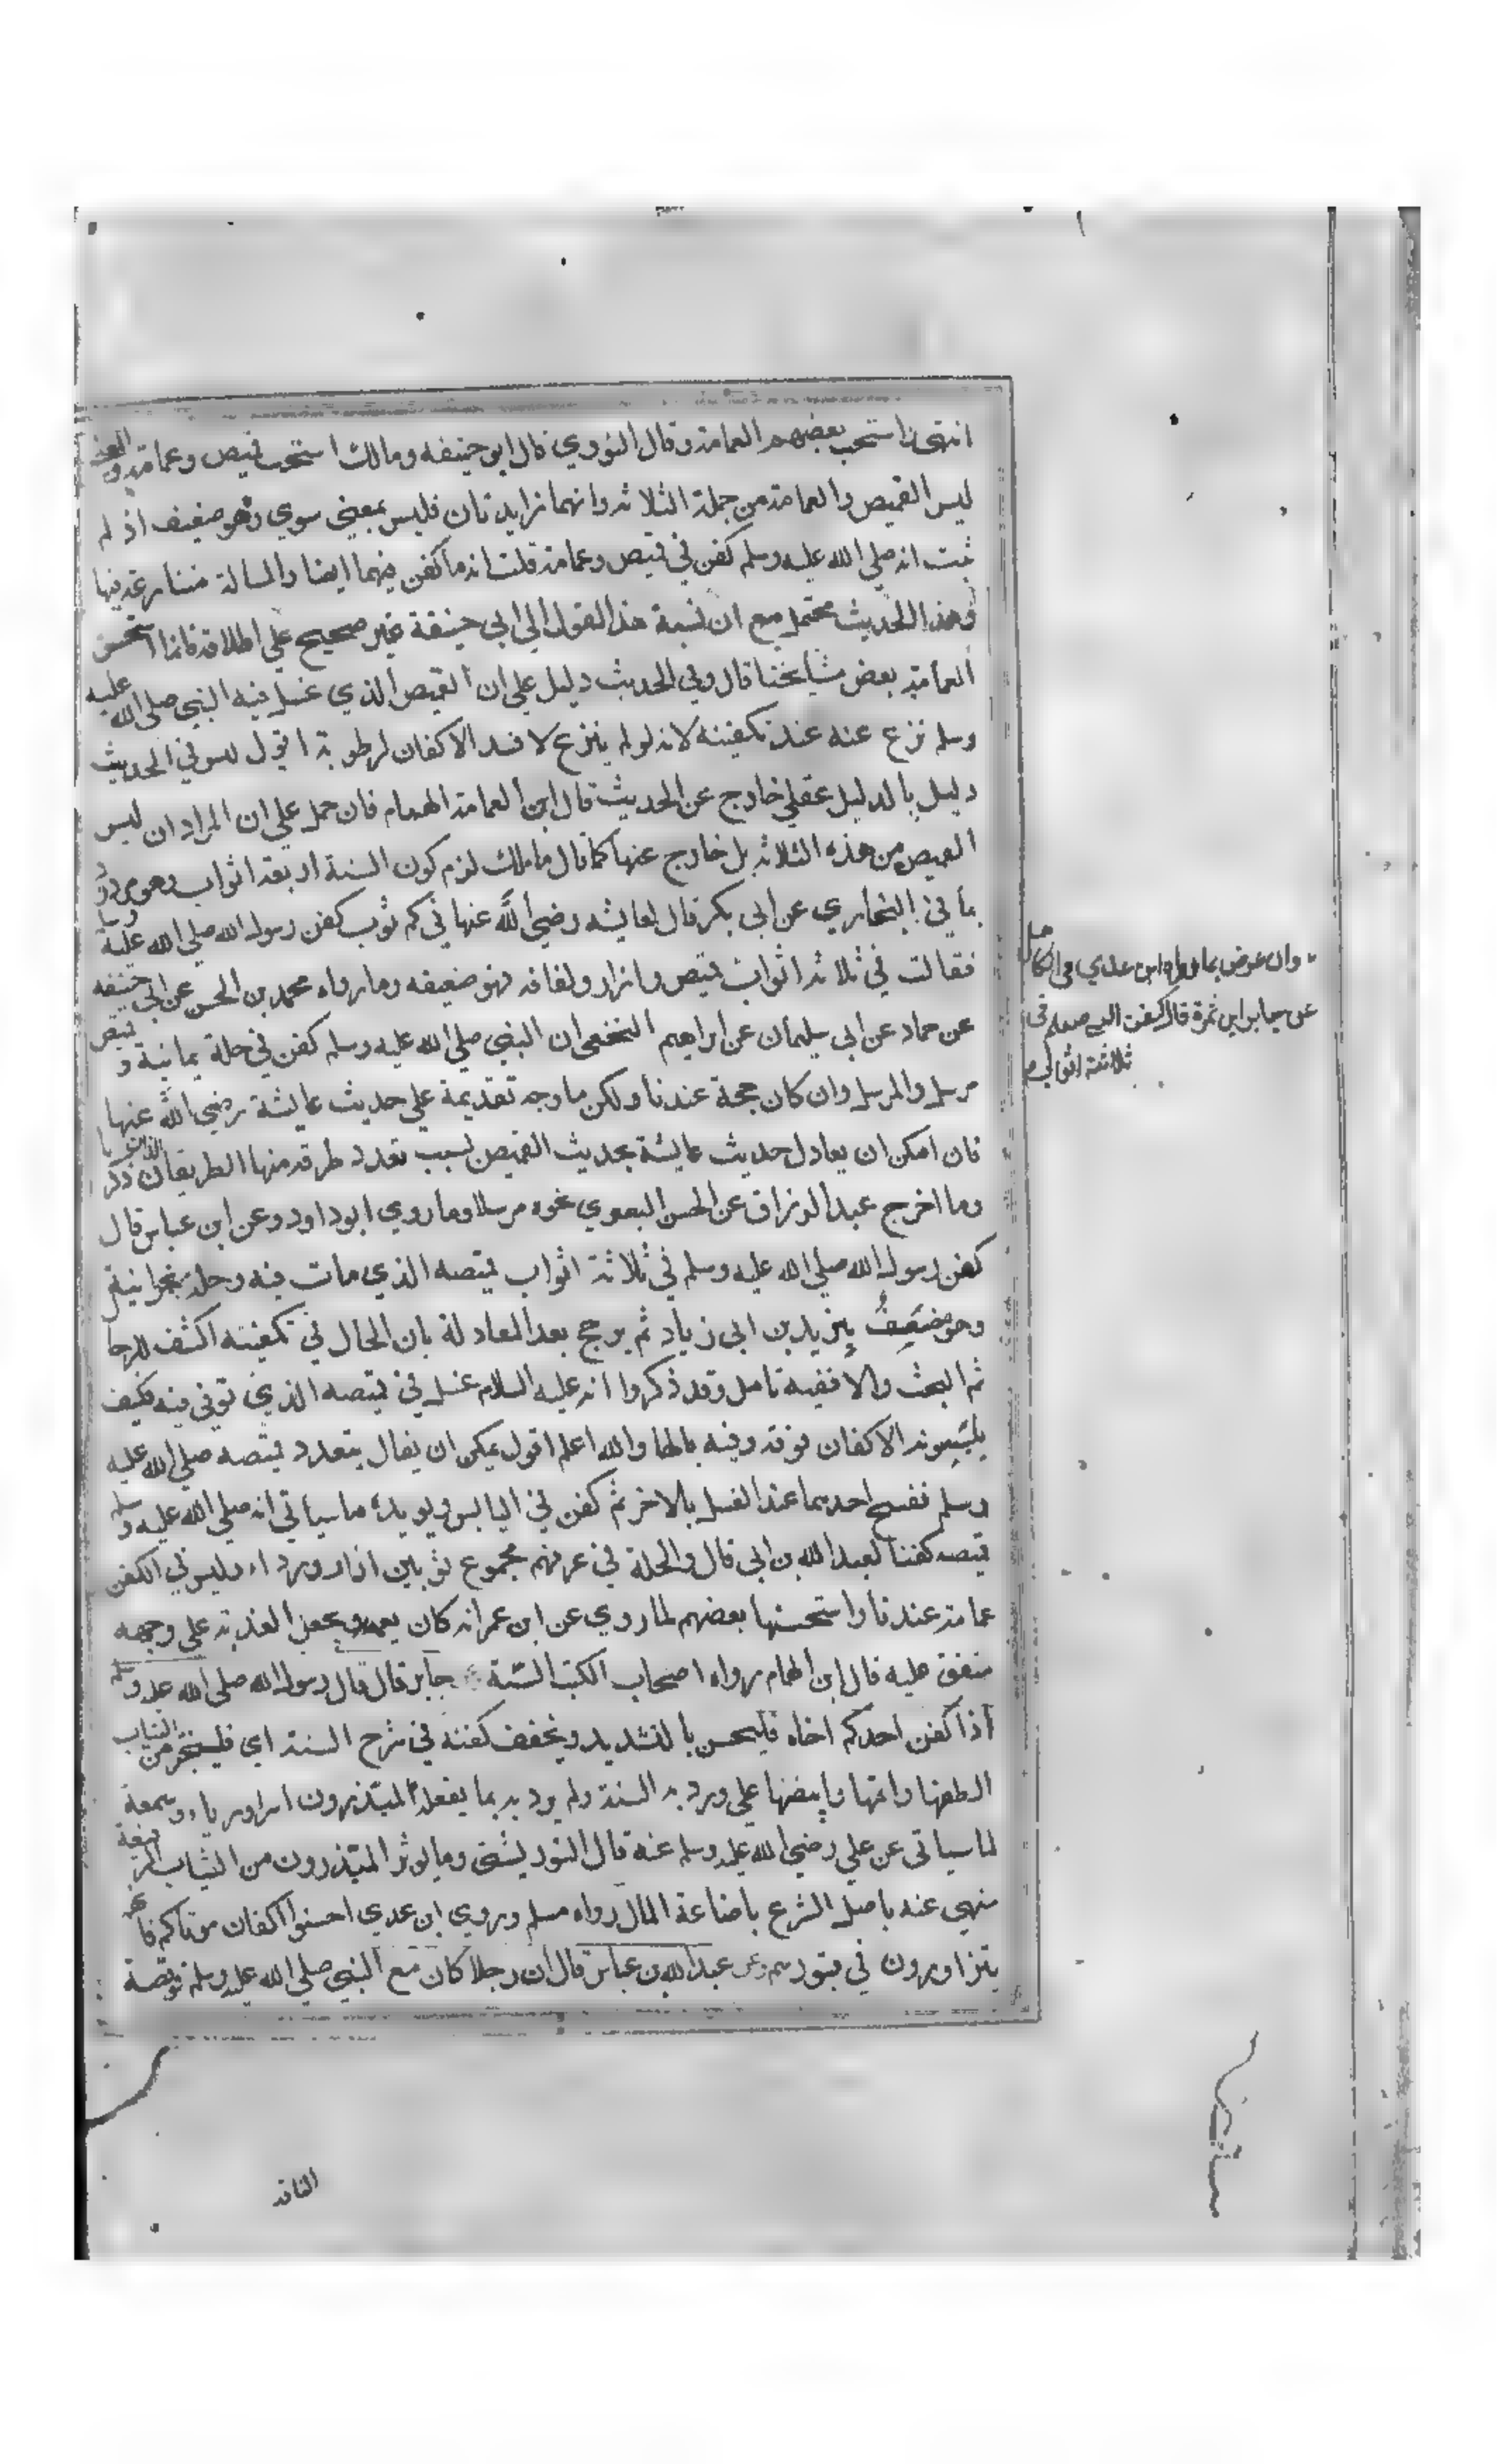 انتهى واستحب بعضهم العمامة وقال النووي قال ابو حنيفه ومالك استحب قميص وعمامة والمعنى
ليس القميص والعمامة من جملة الثلاثة وانهما زايدتان فليس بمعنى سوى وهو ضعيف اذ لم
ثبت انه صلي الله عليه وسلم كفن في قميص وعمامة قلت انه ما كفن فيهما ايضا والمسالة متنازعة فيها
وهذا الحديث محتمل مع ان نسبة هذا القول الي ابي حنيفة غير صحيح علي اطلاقه فانما استحسن
العمامة بعض مشايخنا قال وفي الحديث دليل علي ان القميص الذي غسل فيه النبي صلي الله عليه
وسلم نزع عنه عند تكفينه لانه لو لم ينزع لافسد الاكفان لرطوبة اقول ليس في الحديث
دليل بالدليل عقلي خارج عن الحديث قال ابن العمامة الهمام فان حمل علي ان المراد ان ليس
القميص من هذه الثلاثه بل خارج عنها كما قال مالك لزم كون السنة اربعة اثواب وهو مردود
بما في البخاري عن ابي بكر قال لعايشه رضي الله عنها في كم ثوب كفن رسول الله صلي الله عليه وسلم
فقالت في ثلاثة اثواب قميص وازار ولفافه فهو ضعيفه وما رواه محمد بن الحسن عن ابي حنيفه
عن حماد عن ابي سليمان عن ابراهيم النخعي ان النبي صلي الله عليه وسلم كفن في حلة يمانية و قميص
مرسل والمرسل وان كان حجة عندنا ولكن ما وجه تقديمة علي حديث عايشة رضي الله عنها
فان امكن ان يعادل حديث عايشة بحديث القميص بسبب تعدد طرقه منها الطريقان الذان ذكر
وما اخرج عبد الرزاق عن الحسن البصري نحوه مرسلا وما روي ابو داود وعن ابن عباس قال
كفن رسول الله صلي الله عليه وسلم في ثلاثة اثواب قميصه الذي مات فيه وحلة نجرانية
وهو مضعف بيزيد بن ابي زياد ثم يرجح بعد المعادلة بان الحال في تكفينه اكشف للرجا
ثم البحث والا ففيه تامل وقد ذكروا انه عليه السلام غسل في قميصه الذي توفي فيه فكيف
يلبسونه الاكفان فوقه وفيه بللها والله اعلم اقول يمكن ان يقال بتعدد قميصه صلي الله عليه
وسلم ففسح احدهما عند الغسل بالاخر ثم كفن في اليابس ويويده ما سياتي انه صلي الله عليه وسلم
قميصه كفنا لعبد الله بن ابي قال والحلة في عرفهم مجموع ثوبين ازار ورداء وليس في الكفن
عمامة عندنا واستحسنها بعضهم لما روي عن ابن عمر انه كان يعممه ويجعل العذبة علي وجهه
متفق عليه قال ابن الهمام رواه اصحاب الكتب الستة جابر قال قال رسول الله صلي الله عليه وسلم
اذا كفن احدكم اخاه فليحسن بالتشديد ويخفف كفنه في شرح السنة اي فليختر من الثياب
انظفها واتمها وابيضها علي ورد به السنة ولم يرد به بما يفعله المبذرون اسرا ورياء وسمعة
لما سياتي عن علي رضي الله عليه وسلم عنه قال التوربشتي وما يوثر المبذرون من الثياب الرفيعة
منهي عنه باصل الشرع باضاعة المال رواه مسلم وروي ابن عدي احسنوا اكفان موتاكم فانهم
يتزاورون في قبورهم وعن عبد الله بن عباس قال ان رجلا كان مع النبي صلي الله عليه وسلم فوقصة
وان عوض بما رواه ابن عدي في الكامل
عن جابر ابن ثمرة قال كفن النبي صلعم في
ثلاثة اثواب
الناقه